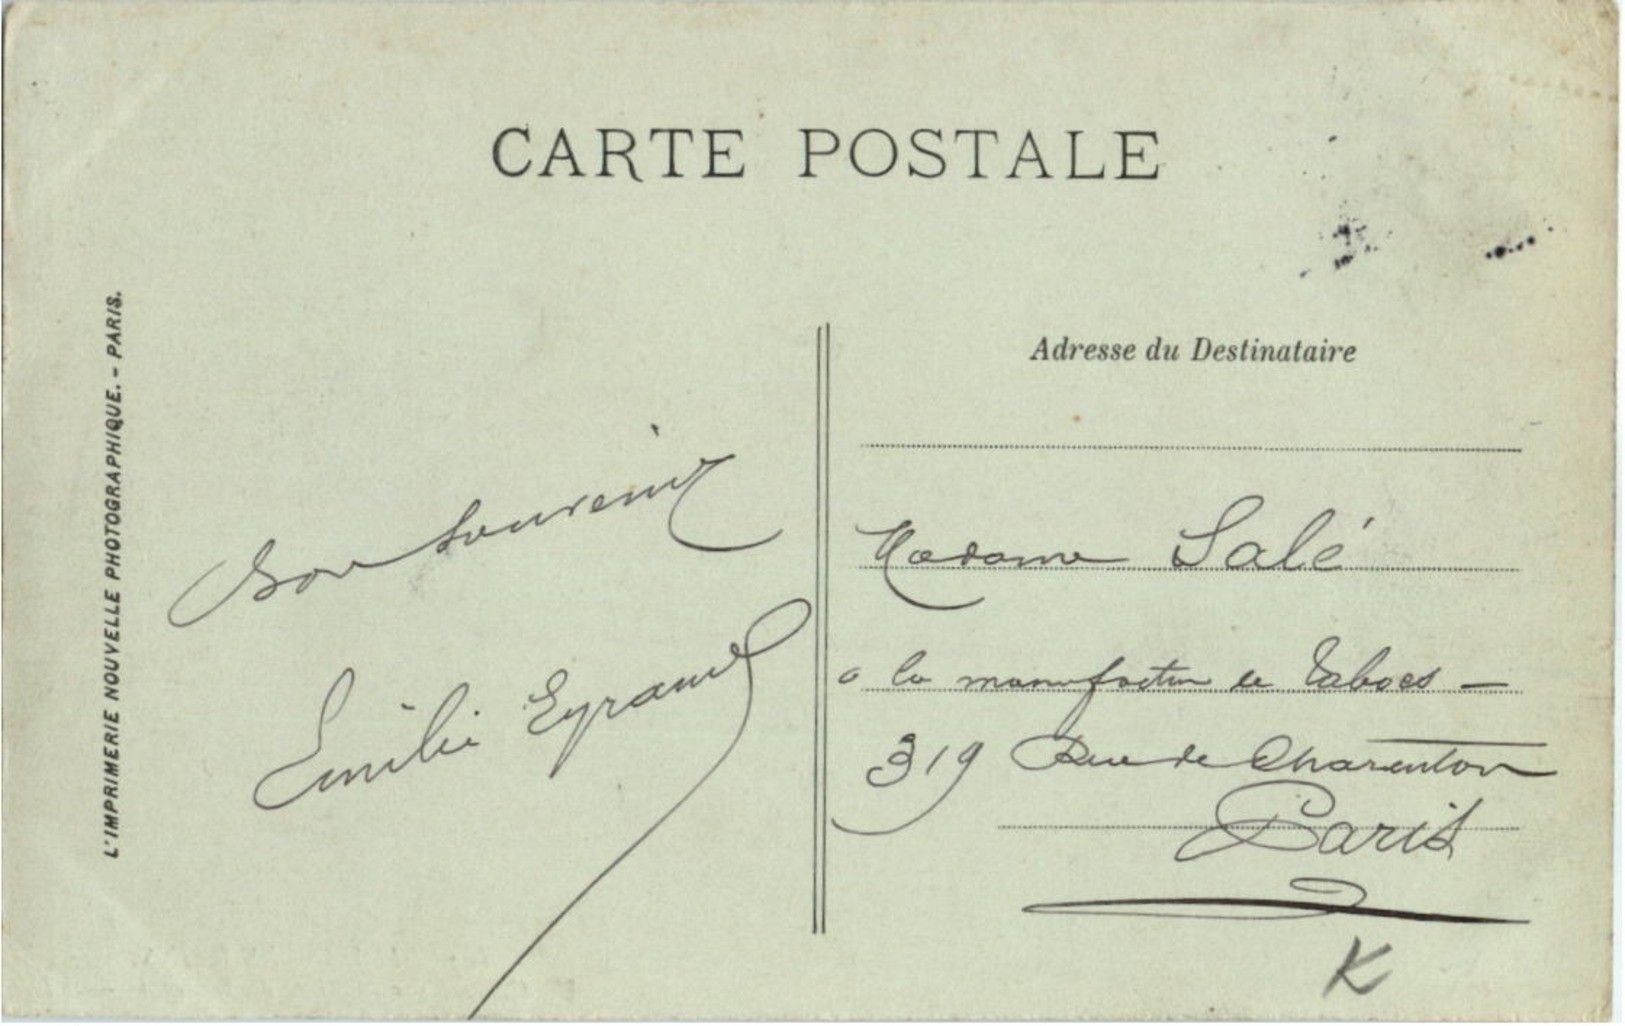 CARTE POSTALE
L'IMPRIMERIE NOUVELLE PHOTOGRAPHIQUE. - PARIS.
Bon souvenir
Emilie
Adresse du Destinataire
Madame Salé
a la manufacture de Tabacs -
319 Rue de Charenton
Paris
K